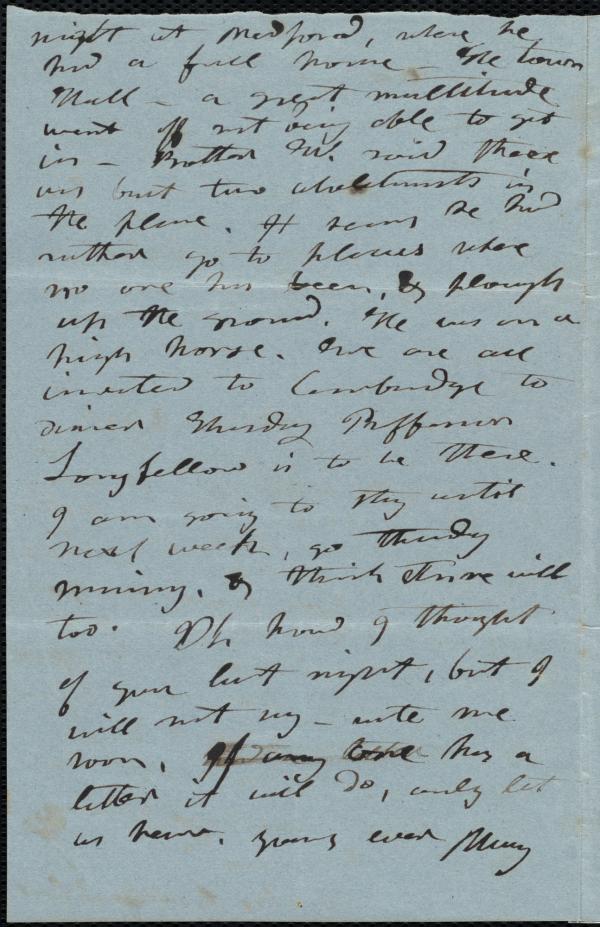 night at Medford, where he
had a full house - The town
Hall - a great multitude
went off not being able to get
in - Brother W. said there
was but two abolitionists in
the place. It seems he had
rather go to places where
no one has been, & plough
up the ground. He was on a
high horse. We are all
invited to Cambridge to
dinner Thursday Proffessor
Longfellow is to be there.
I am going to stay until
next week, go thursday
morning, & think Anne will
too. Oh how I thought
of you last night, but I
will not say - write me
soon, If any one has a
letter it will do, only let
us hear. yours ever Mary